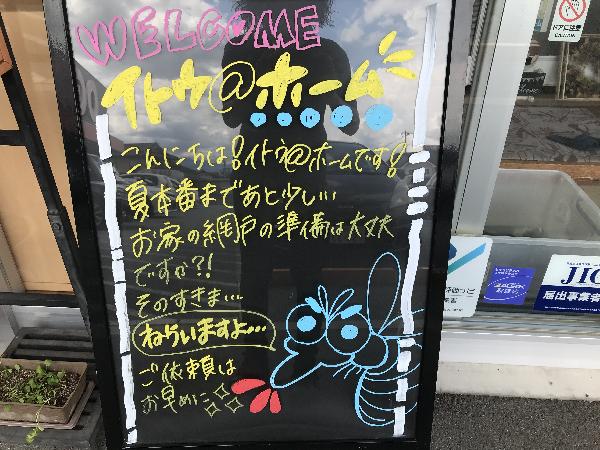 WELCOME
イトウ@ホーム
こんにちは!イトウ@ホームです!
夏本番まであと少し…
お家の網戸の準備は大丈夫
ですか?!
そのすきま…
ねらいますよ…
ご依頼は
お早めに
JIO
届出事業者